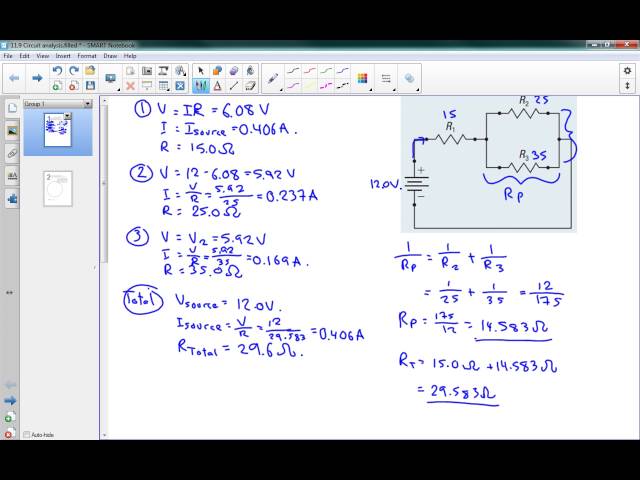 11.9 Circuit analysis.filled * - SMART Notebook
File Edit View Insert Format Tools Add-ons Help
Group 1
① V = IR = 6.08 V
I = Isource = 0.406 A.
R = 15.0 Ω
② V = 12 - 6.08 = 5.92 V
I = V/R = 5.92/25 = 0.237 A
R = 25.0 Ω
③ V = V2 = 5.92 V
I = V/R = 5.92/35 = 0.169 A.
R = 35.0 Ω
Total Vsource = 12.0 V.
Isource = V/R = 12/29.583 = 0.406 A
RTotal = 29.6 Ω.
R2 25
15
R1
R3 35
12.0V.
+
−
Rp
1/Rp = 1/R2 + 1/R3
= 1/25 + 1/35 = 12/175
Rp = 175/12 = 14.583 Ω
RT = 15.0 Ω + 14.583 Ω
= 29.583 Ω
Auto-hide